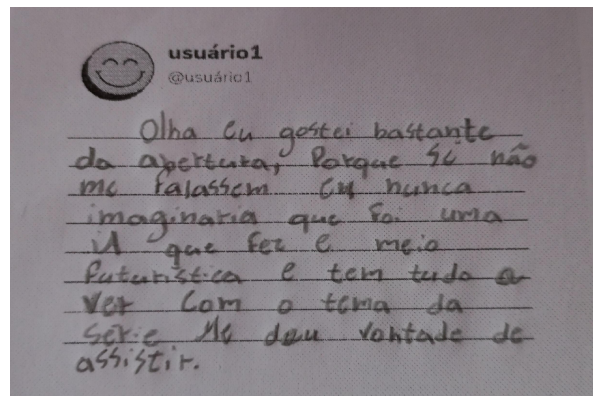 usuário1
@usuário1
Olha Eu gostei bastante
da abertura, Porque Se não
me falassem Eu nunca
imaginaria que foi uma
iA que fez E meio
futuristica E tem tudo a
ver com o tema da
serie Me deu vontade de
assistir.